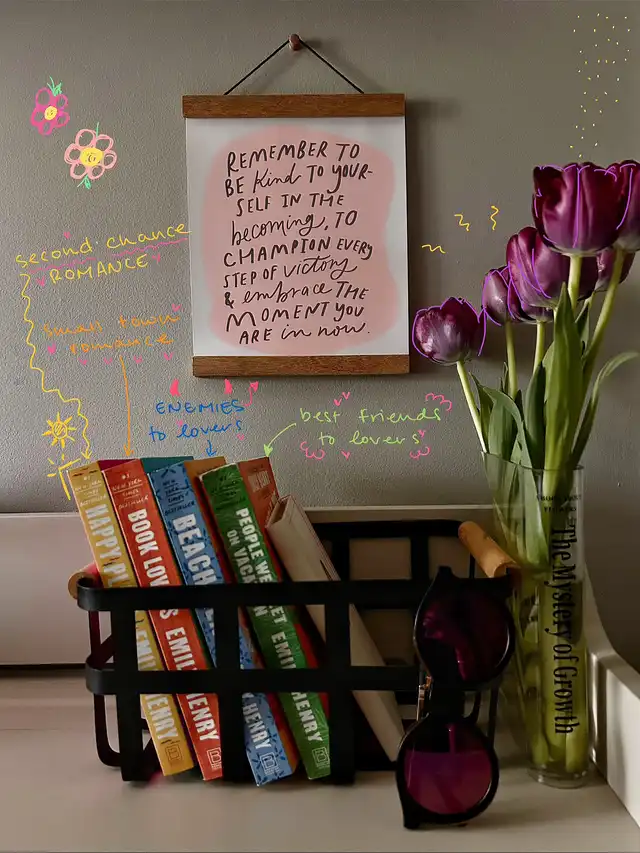 REMEMBER TO
BE kind TO YOUR-
SELF IN THE
becoming, TO
CHAMPION EVERY
STEP OF victory
& embrace THE
MOMENT YOU
ARE in now.
second chance
ROMANCE
small town
romance
ENEMIES
to lovers
best friends
to lovers
HAPPY PL
EMIL
#1
NEW YORK TIMES
BESTSELLER
BOOK LOV S EMIL
HENRY
BEACH
HENRY
PEOPLE WE ET EMI
ON VACA N HENRY
The Mystery of Growth